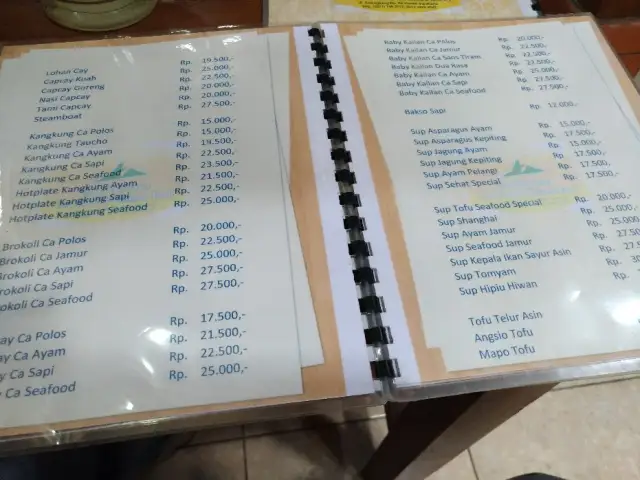 Lohun Cay Rp. 19.500,-
Capcay Kuah Rp. 25.000,-
Capcay Goreng Rp. 22.500,-
Nasi Capcay Rp. 20.000,-
Tami Capcay Rp. 20.000,-
Steamboat Rp. 27.500,-
Kangkung Ca Polos Rp. 15.000,-
Kangkung Taucho Rp. 15.000,-
Kangkung Ca Ayam Rp. 19.500,-
Kangkung Ca Sapi Rp. 22.500,-
Kangkung Ca Seafood Rp. 23.500,-
Hotplate Kangkung Ayam Rp. 21.500,-
Hotplate Kangkung Sapi Rp. 22.500,-
Hotplate Kangkung Seafood Rp. 25.000,-
Brokoli Ca Polos Rp. 20.000,-
Brokoli Ca Jamur Rp. 22.500,-
Brokoli Ca Ayam Rp. 25.000,-
rokoli Ca Sapi Rp. 27.500,-
okoli Ca Seafood Rp. 27.500,-
ay Ca Polos Rp. 17.500,-
ay Ca Ayam Rp. 21.500,-
y Ca Sapi Rp. 22.500,-
Ca Seafood Rp. 25.000,-
Baby Kailan Ca Polos Rp. 20.000,-
Baby Kailan Ca Jamur Rp. 22.500,-
Baby Kailan Ca Saus Tiram Rp.
Baby Kailan Dua Rasa Rp. 22.000,-
Baby Kailan Ca Ayam Rp. 25.000,-
Baby Kailan Ca Sapi Rp. 27.500,-
Baby Kailan Ca Seafood Rp. 27.500,-
Bakso Sapi Rp. 12.000,-
Sup Asparagus Ayam Rp. 15.000,-
Sup Asparagus Kepiting Rp. 17.500,-
Sup Jagung Ayam Rp. 15.000,-
Sup Jagung Kepiting Rp. 17.500,-
Sup Ayam Pelangi Rp. 17.500,-
Sup Sehat Special Rp. 17.500,-
Sup Tofu Seafood Special Rp. 20.000,-
Sup Shanghai Rp. 25.000,-
Sup Ayam Jamur Rp. 25.000,
Sup Seafood Jamur Rp. 27.50
Sup Kepala Ikan Sayur Asin Rp. 27.
Sup Tomyam Rp. 30
Sup Hipiu Hiwan Rp.
Tofu Telur Asin
Angsio Tofu
Mapo Tofu